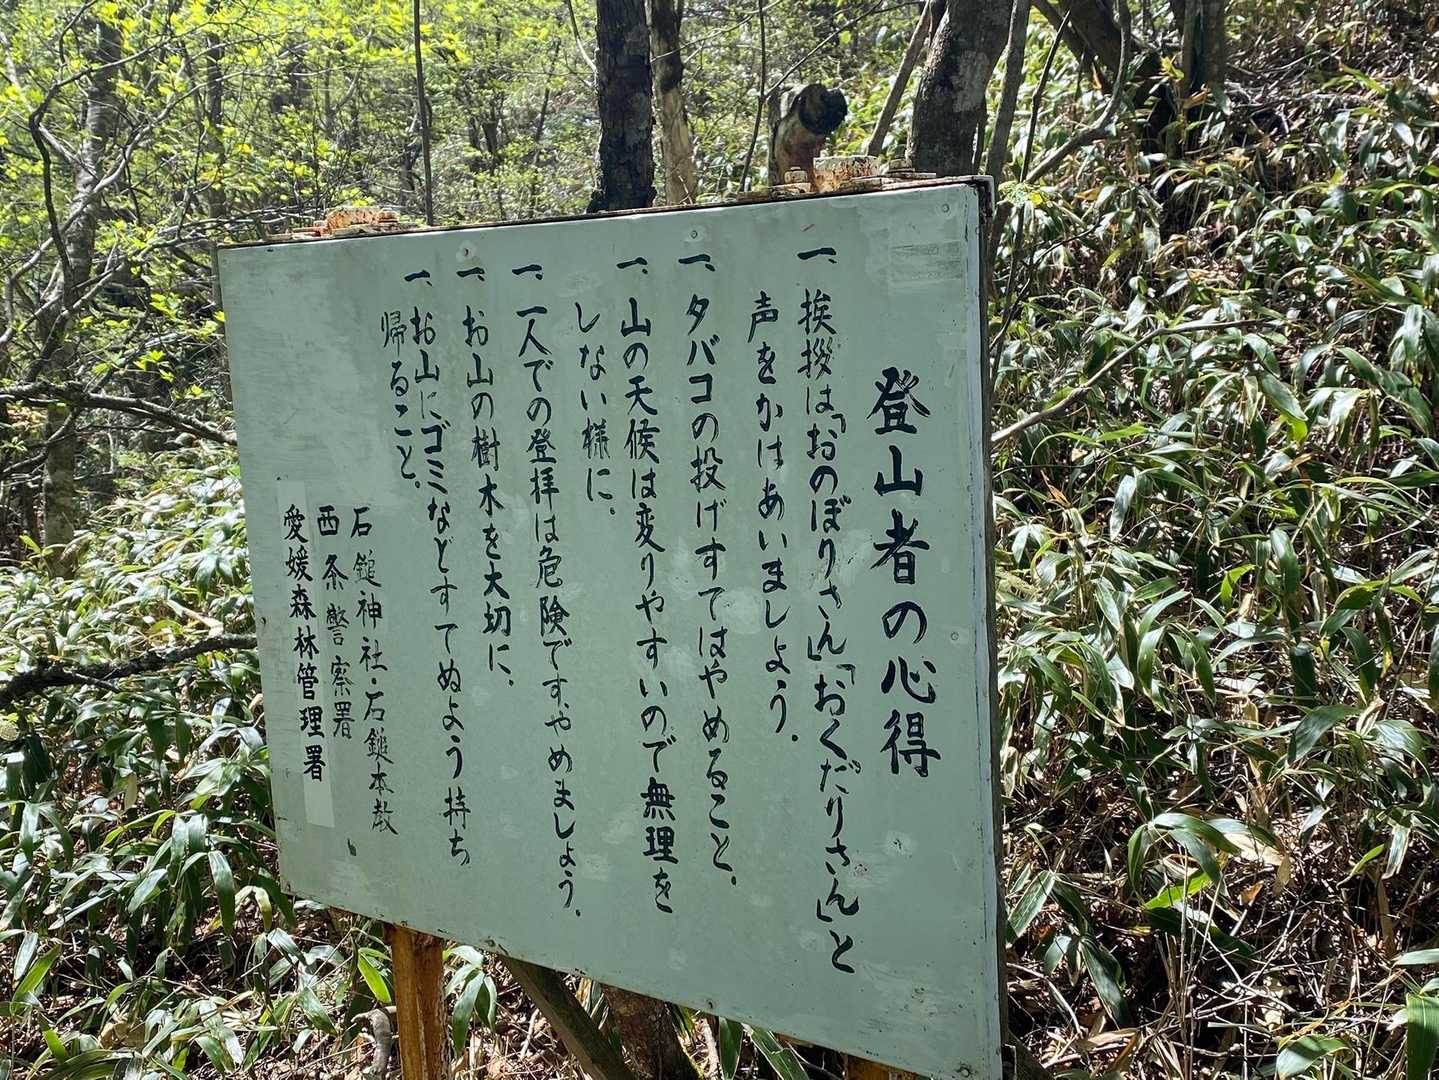 登山者の心得
一、挨拶は「おのぼりさん」「おくだりさん」と
声をかけあいましょう。
一、タバコの投げすてはやめること。
一、山の天候は変りやすいので無理を
しない様に。
一、一人での登拝は危険ですやめましょう。
一、お山の樹木を大切に。
一、お山にゴミなどすてぬよう持ち
帰ること。
石鎚神社・石鎚本教
西条警察署
愛媛森林管理署